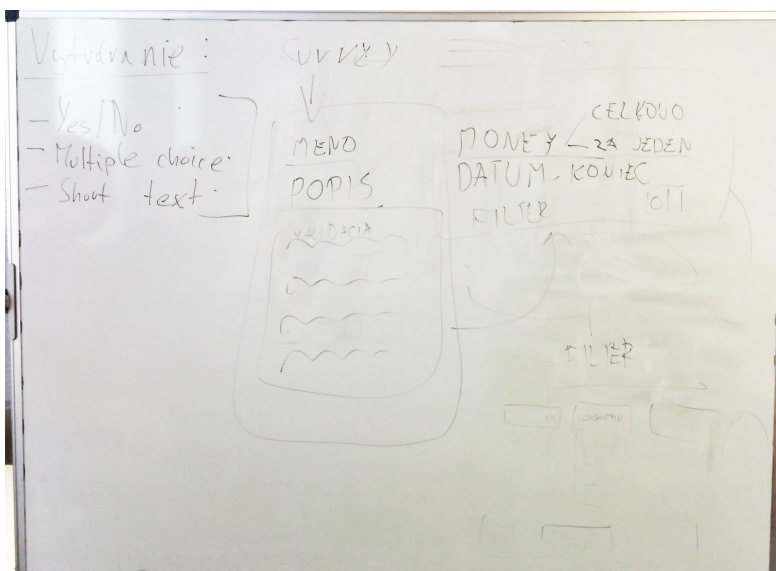 Vytváranie :
- Yes/No
- Multiple choice
- Short text
SURVEY
MENO
POPIS
VALIDACIA
CELKOVO
MONEY - ZA JEDEN
DATUM - KONIEC
FILTER
FILTER